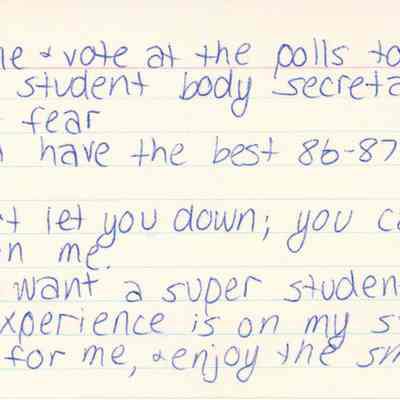 & vote at the polls to
student body secreta
fear
have the best 86-87
t let you down; you ca
n me.
want a super studen
xperience is on my s
for me, & enjoy the sm